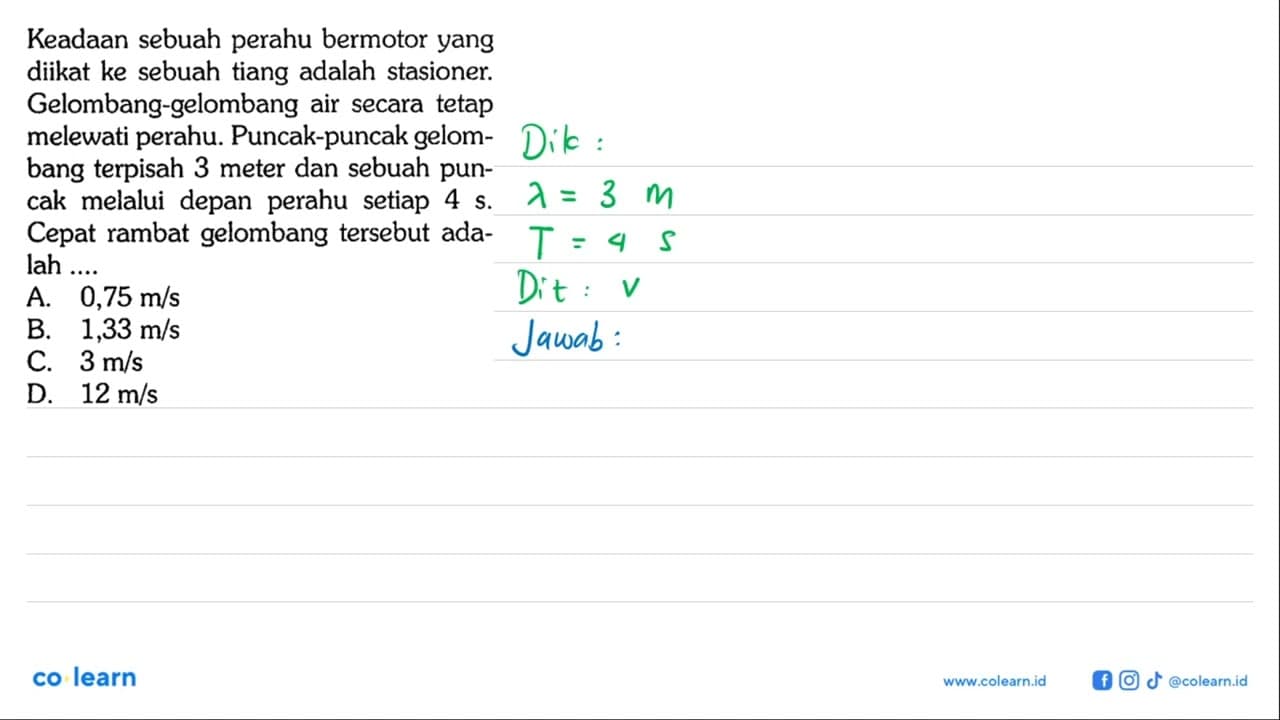 Keadaan sebuah perahu bermotor yang
diikat ke sebuah tiang adalah stasioner.
Gelombang-gelombang air secara tetap
melewati perahu. Puncak-puncak gelom-
bang terpisah 3 meter dan sebuah pun-
cak melalui depan perahu setiap 4 s.
Cepat rambat gelombang tersebut ada-
lah ....
A. 0,75 m/s
B. 1,33 m/s
C. 3 m/s
D. 12 m/s
Dik :
λ = 3 m
T = 4 s
Dit : v
Jawab :
co learn
www.colearn.id
@colearn.id